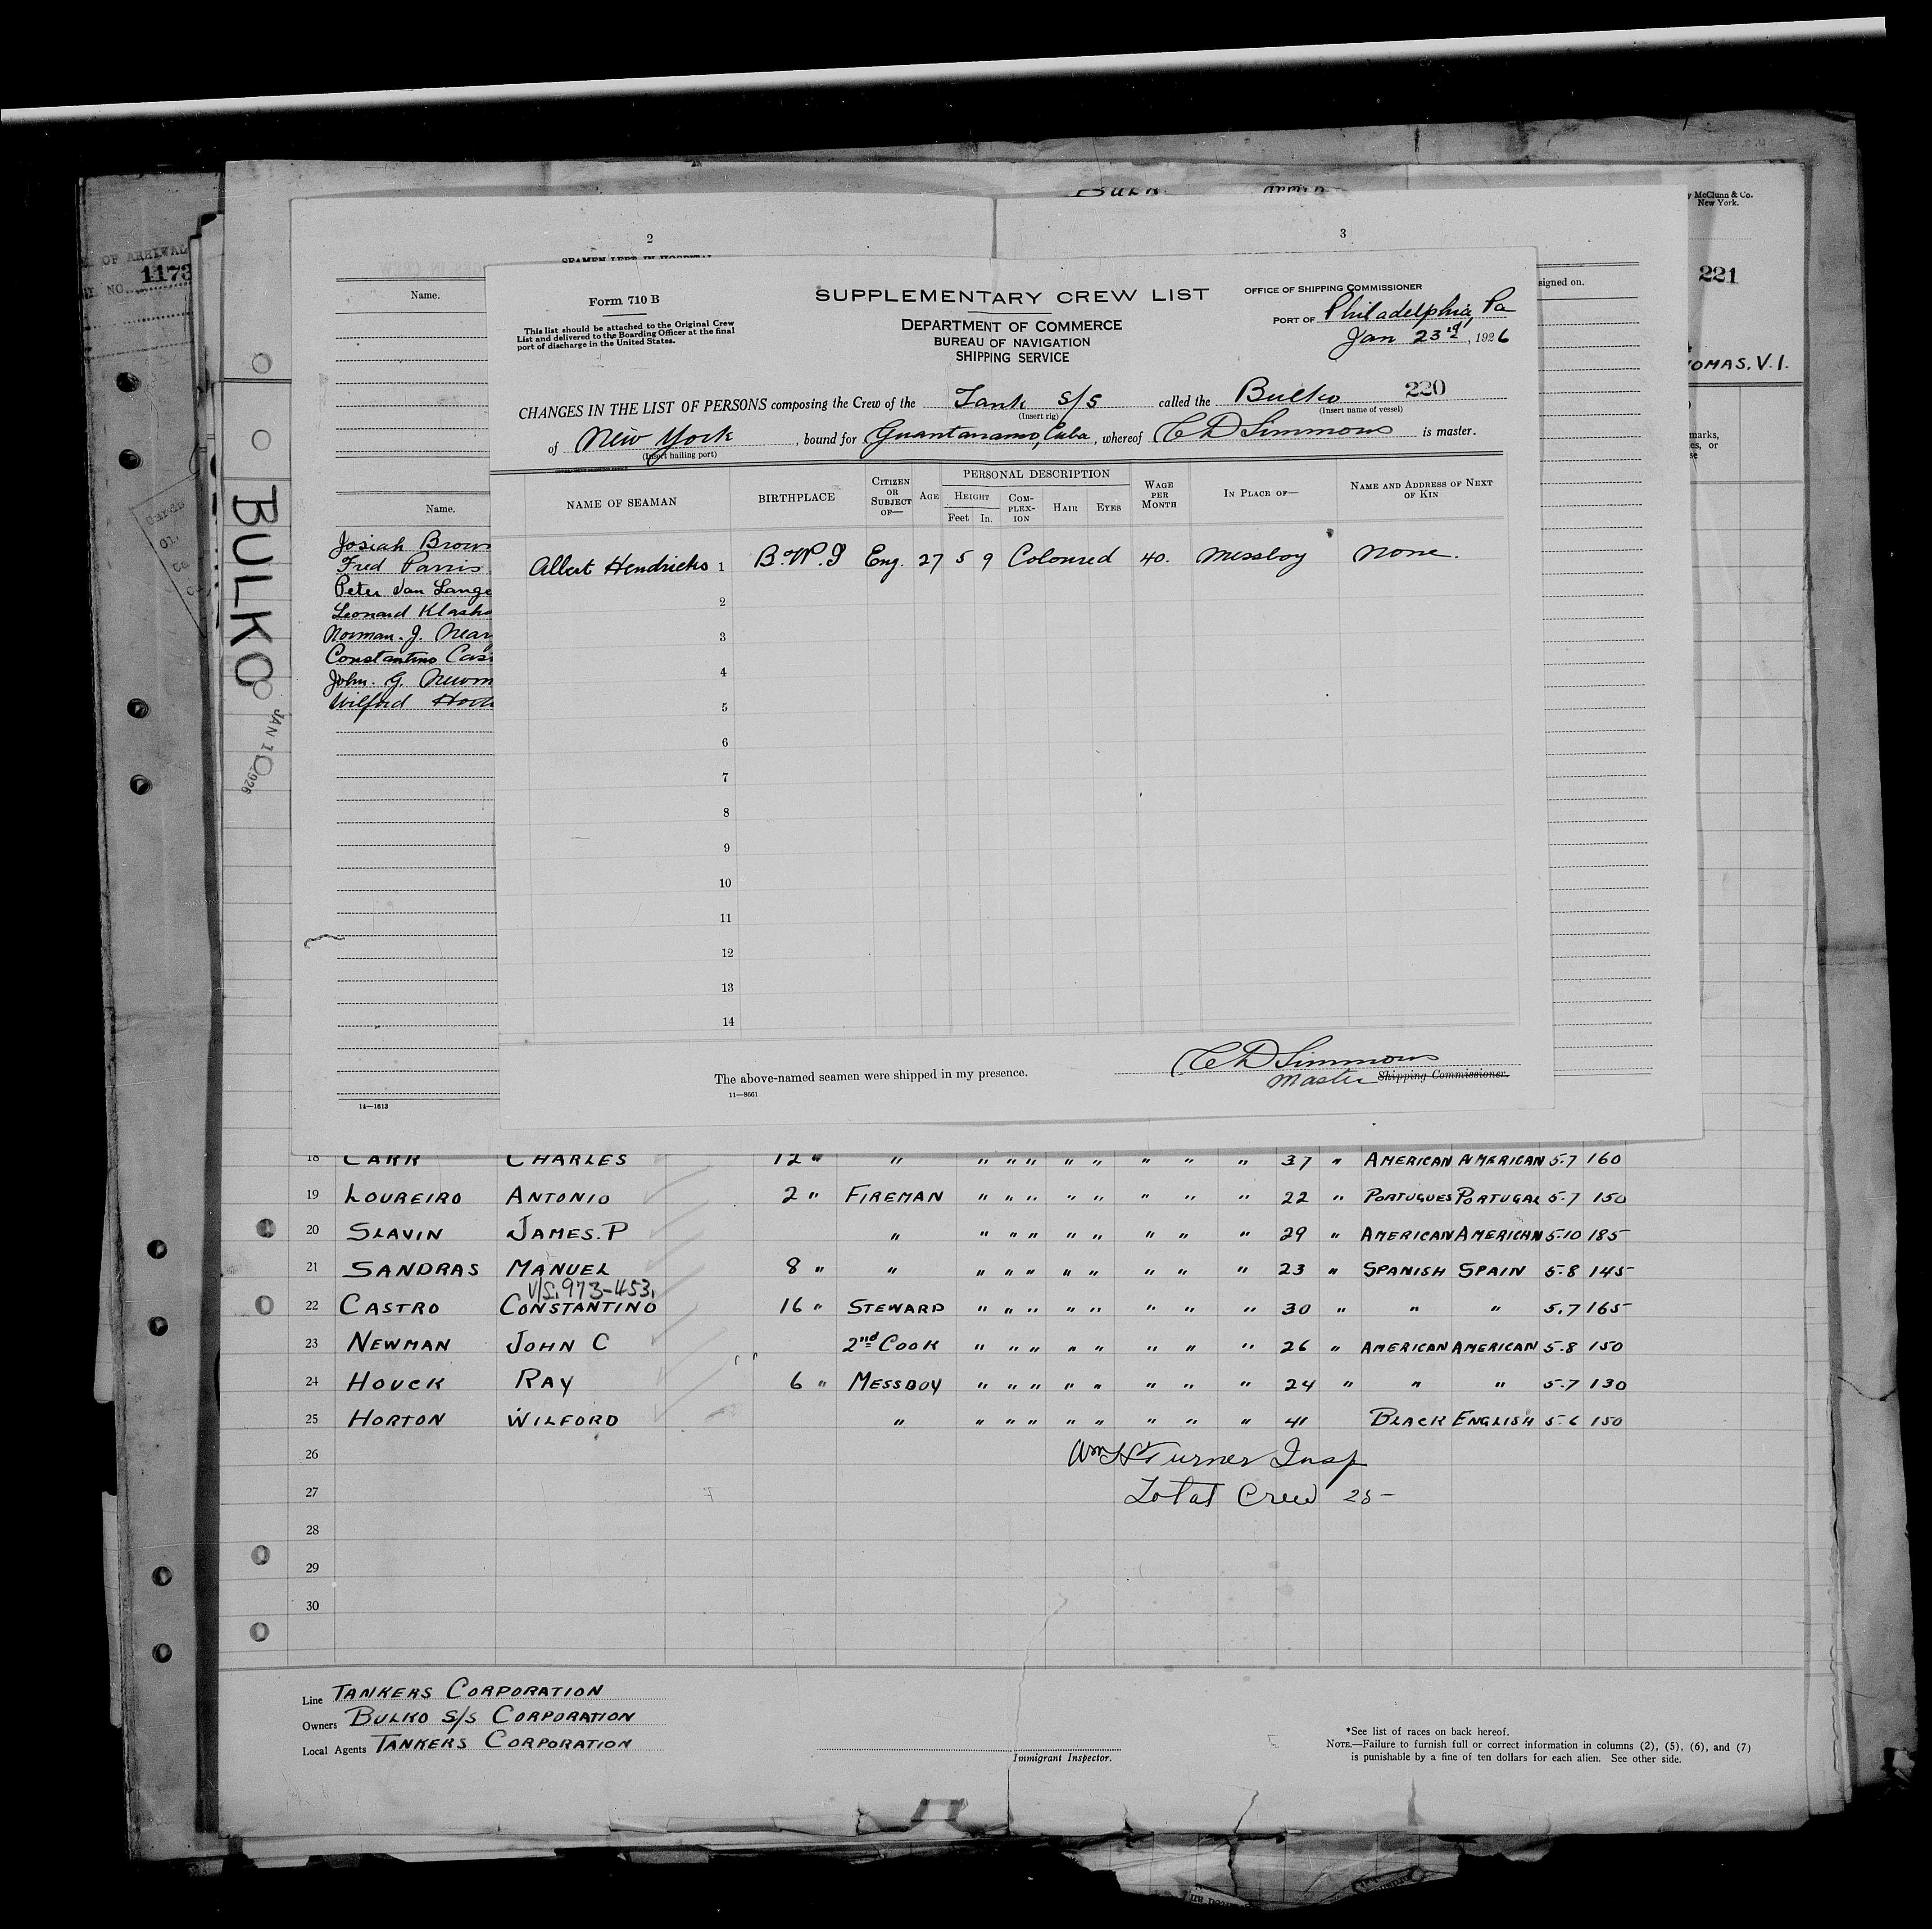 OF ARRIVAL
NO. 1173
BULKO
JAN 1 1926
y McClunn & Co.
New York.
221
HOMAS, V.I.
marks,
es, or
se
2
3
SEAMEN LEFT IN HOSPITAL
Name.
signed on.
Name.
Josiah Brown
Fred Parris
Peter Van Lange
Leonard Klasko
Norman. J. Near
Constantino Cas
John. G. Newm
Wilford Hort
14—1613
Form 710 B
This list should be attached to the Original Crew
List and delivered to the Boarding Officer at the final
port of discharge in the United States.
SUPPLEMENTARY CREW LIST
DEPARTMENT OF COMMERCE
BUREAU OF NAVIGATION
SHIPPING SERVICE
OFFICE OF SHIPPING COMMISSIONER
PORT OF Philadelphia, Pa
Jan 23rd, 1926
CHANGES IN THE LIST OF PERSONS composing the Crew of the Tank S/S called the Bulko 220
(Insert rig) (Insert name of vessel)
of New York, bound for Guantanamo, Cuba, whereof C D Simmons is master.
(Insert hailing port)
NAME OF SEAMAN BIRTHPLACE CITIZEN OR SUBJECT OF— AGE PERSONAL DESCRIPTION WAGE PER MONTH IN PLACE OF— NAME AND ADDRESS OF NEXT OF KIN
HEIGHT COMPLEXION HAIR EYES
Feet In.
Albert Hendricks 1 B.W.I Eng. 27 5 9 Coloured 40. Messboy None.
2
3
4
5
6
7
8
9
10
11
12
13
14
The above-named seamen were shipped in my presence.
C D Simmons
Master Shipping Commissioner.
11—8661
18 CARR CHARLES 12 " " " " " " " " " " 37 " AMERICAN AMERICAN 5.7 160
19 LOUREIRO ANTONIO 2 " FIREMAN " " " " " " " " 22 " PORTUGUES PORTUGAL 5.7 150
20 SLAVIN JAMES. P " " " " " " " " " 29 " AMERICAN AMERICAN 5.10 185
21 SANDRAS MANUEL 8 " " " " " " " " " " 23 " SPANISH SPAIN 5.8 145
V/S. 973-453.
22 CASTRO CONSTANTINO 16 " STEWARD " " " " " " " " 30 " " " 5.7 165
23 NEWMAN JOHN C 2nd COOK " " " " " " " " 26 " AMERICAN AMERICAN 5.8 150
24 HOUCK RAY 6 " MESSBOY " " " " " " " " 24 " " " 5.7 130
25 HORTON WILFORD " " " " " " " " " 41 BLACK ENGLISH 5.6 150
26 Wm H Turner Insp
27 Total Crew 25
28
29
30
Line TANKERS CORPORATION
Owners BULKO S/S CORPORATION
Local Agents TANKERS CORPORATION
Immigrant Inspector.
*See list of races on back hereof.
NOTE.—Failure to furnish full or correct information in columns (2), (5), (6), and (7)
is punishable by a fine of ten dollars for each alien. See other side.